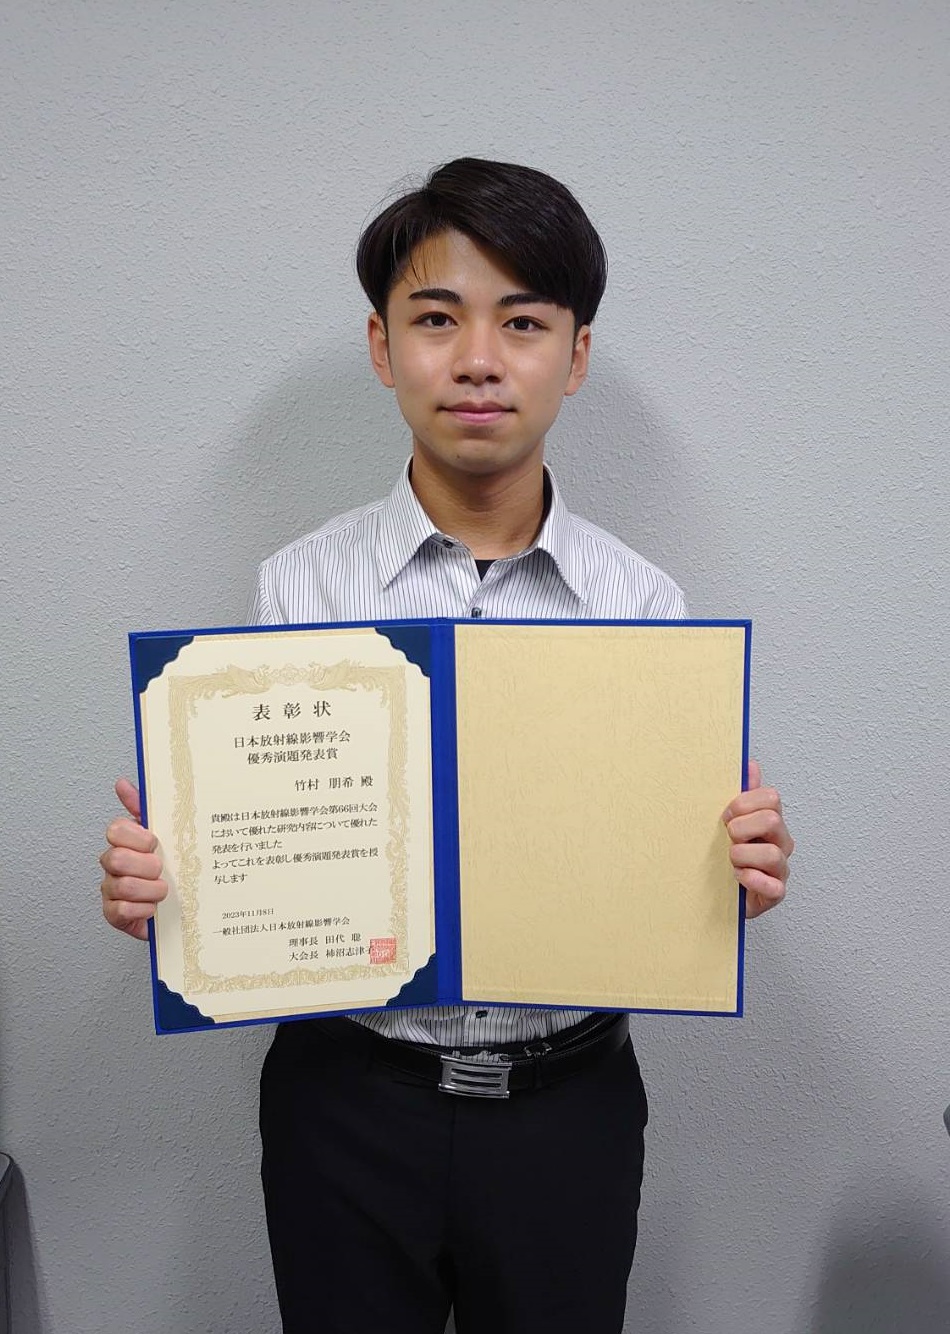 表彰状
日本放射線影響学会
優秀演題発表賞
竹村 朋希 殿
貴殿は日本放射線影響学会第66回大会
において優れた研究内容について優れた
発表を行いました
よってこれを表彰し優秀演題発表賞を授
与します
2023年11月8日
一般社団法人日本放射線影響学会
理事長 田代 聡
大会長 柿沼志津子